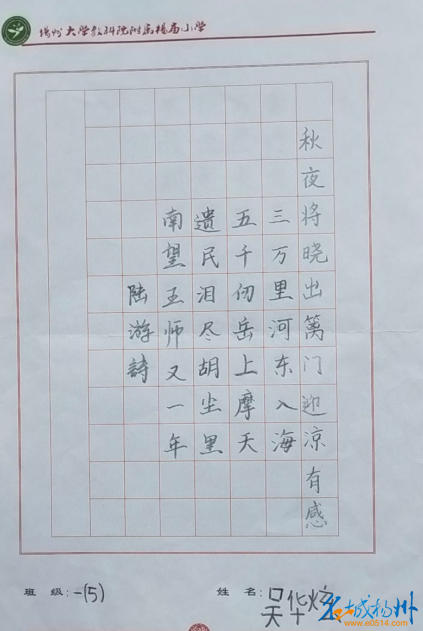 扬州大学教科院附属杨庙小学
秋夜将晓出篱门迎凉有感
三万里河东入海
五千仞岳上摩天
遗民泪尽胡尘里
南望王师又一年
陆游诗
班级:一(5)
姓名:吴华炫
名城扬州
www.e0514.com